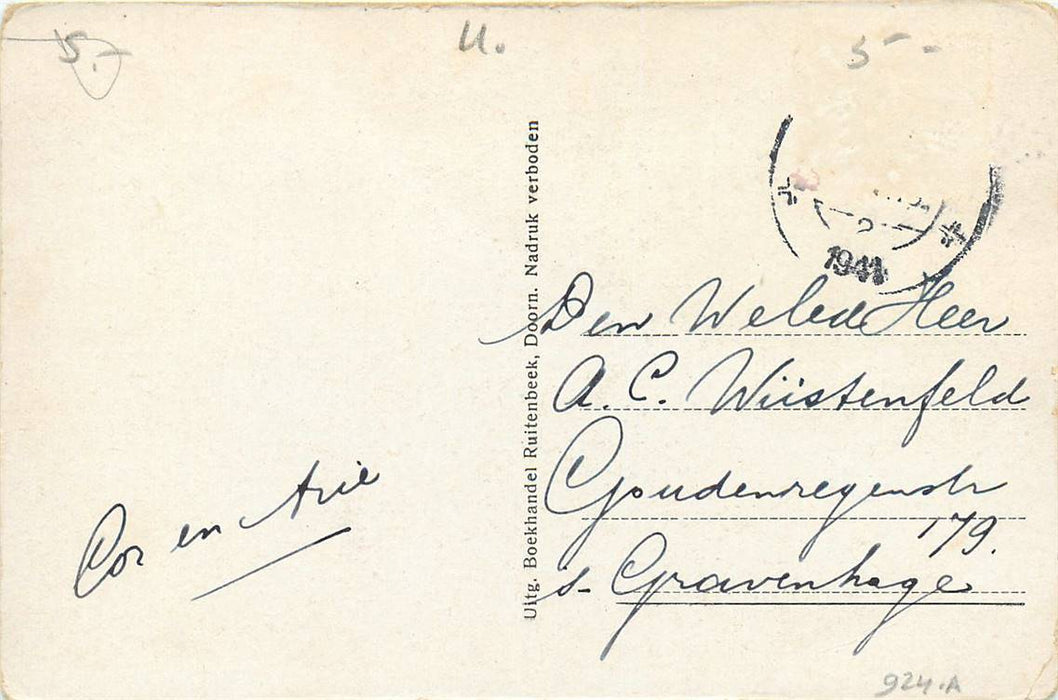 5.-
U.
5-
1941
Uitg. Boekhandel Ruitenbeek, Doorn. Nadruk verboden
Den Weled Heer
A. C. Wüstenfeld
Goudenregenstr
179.
s-Gravenhage
Cor en Arie
924.A